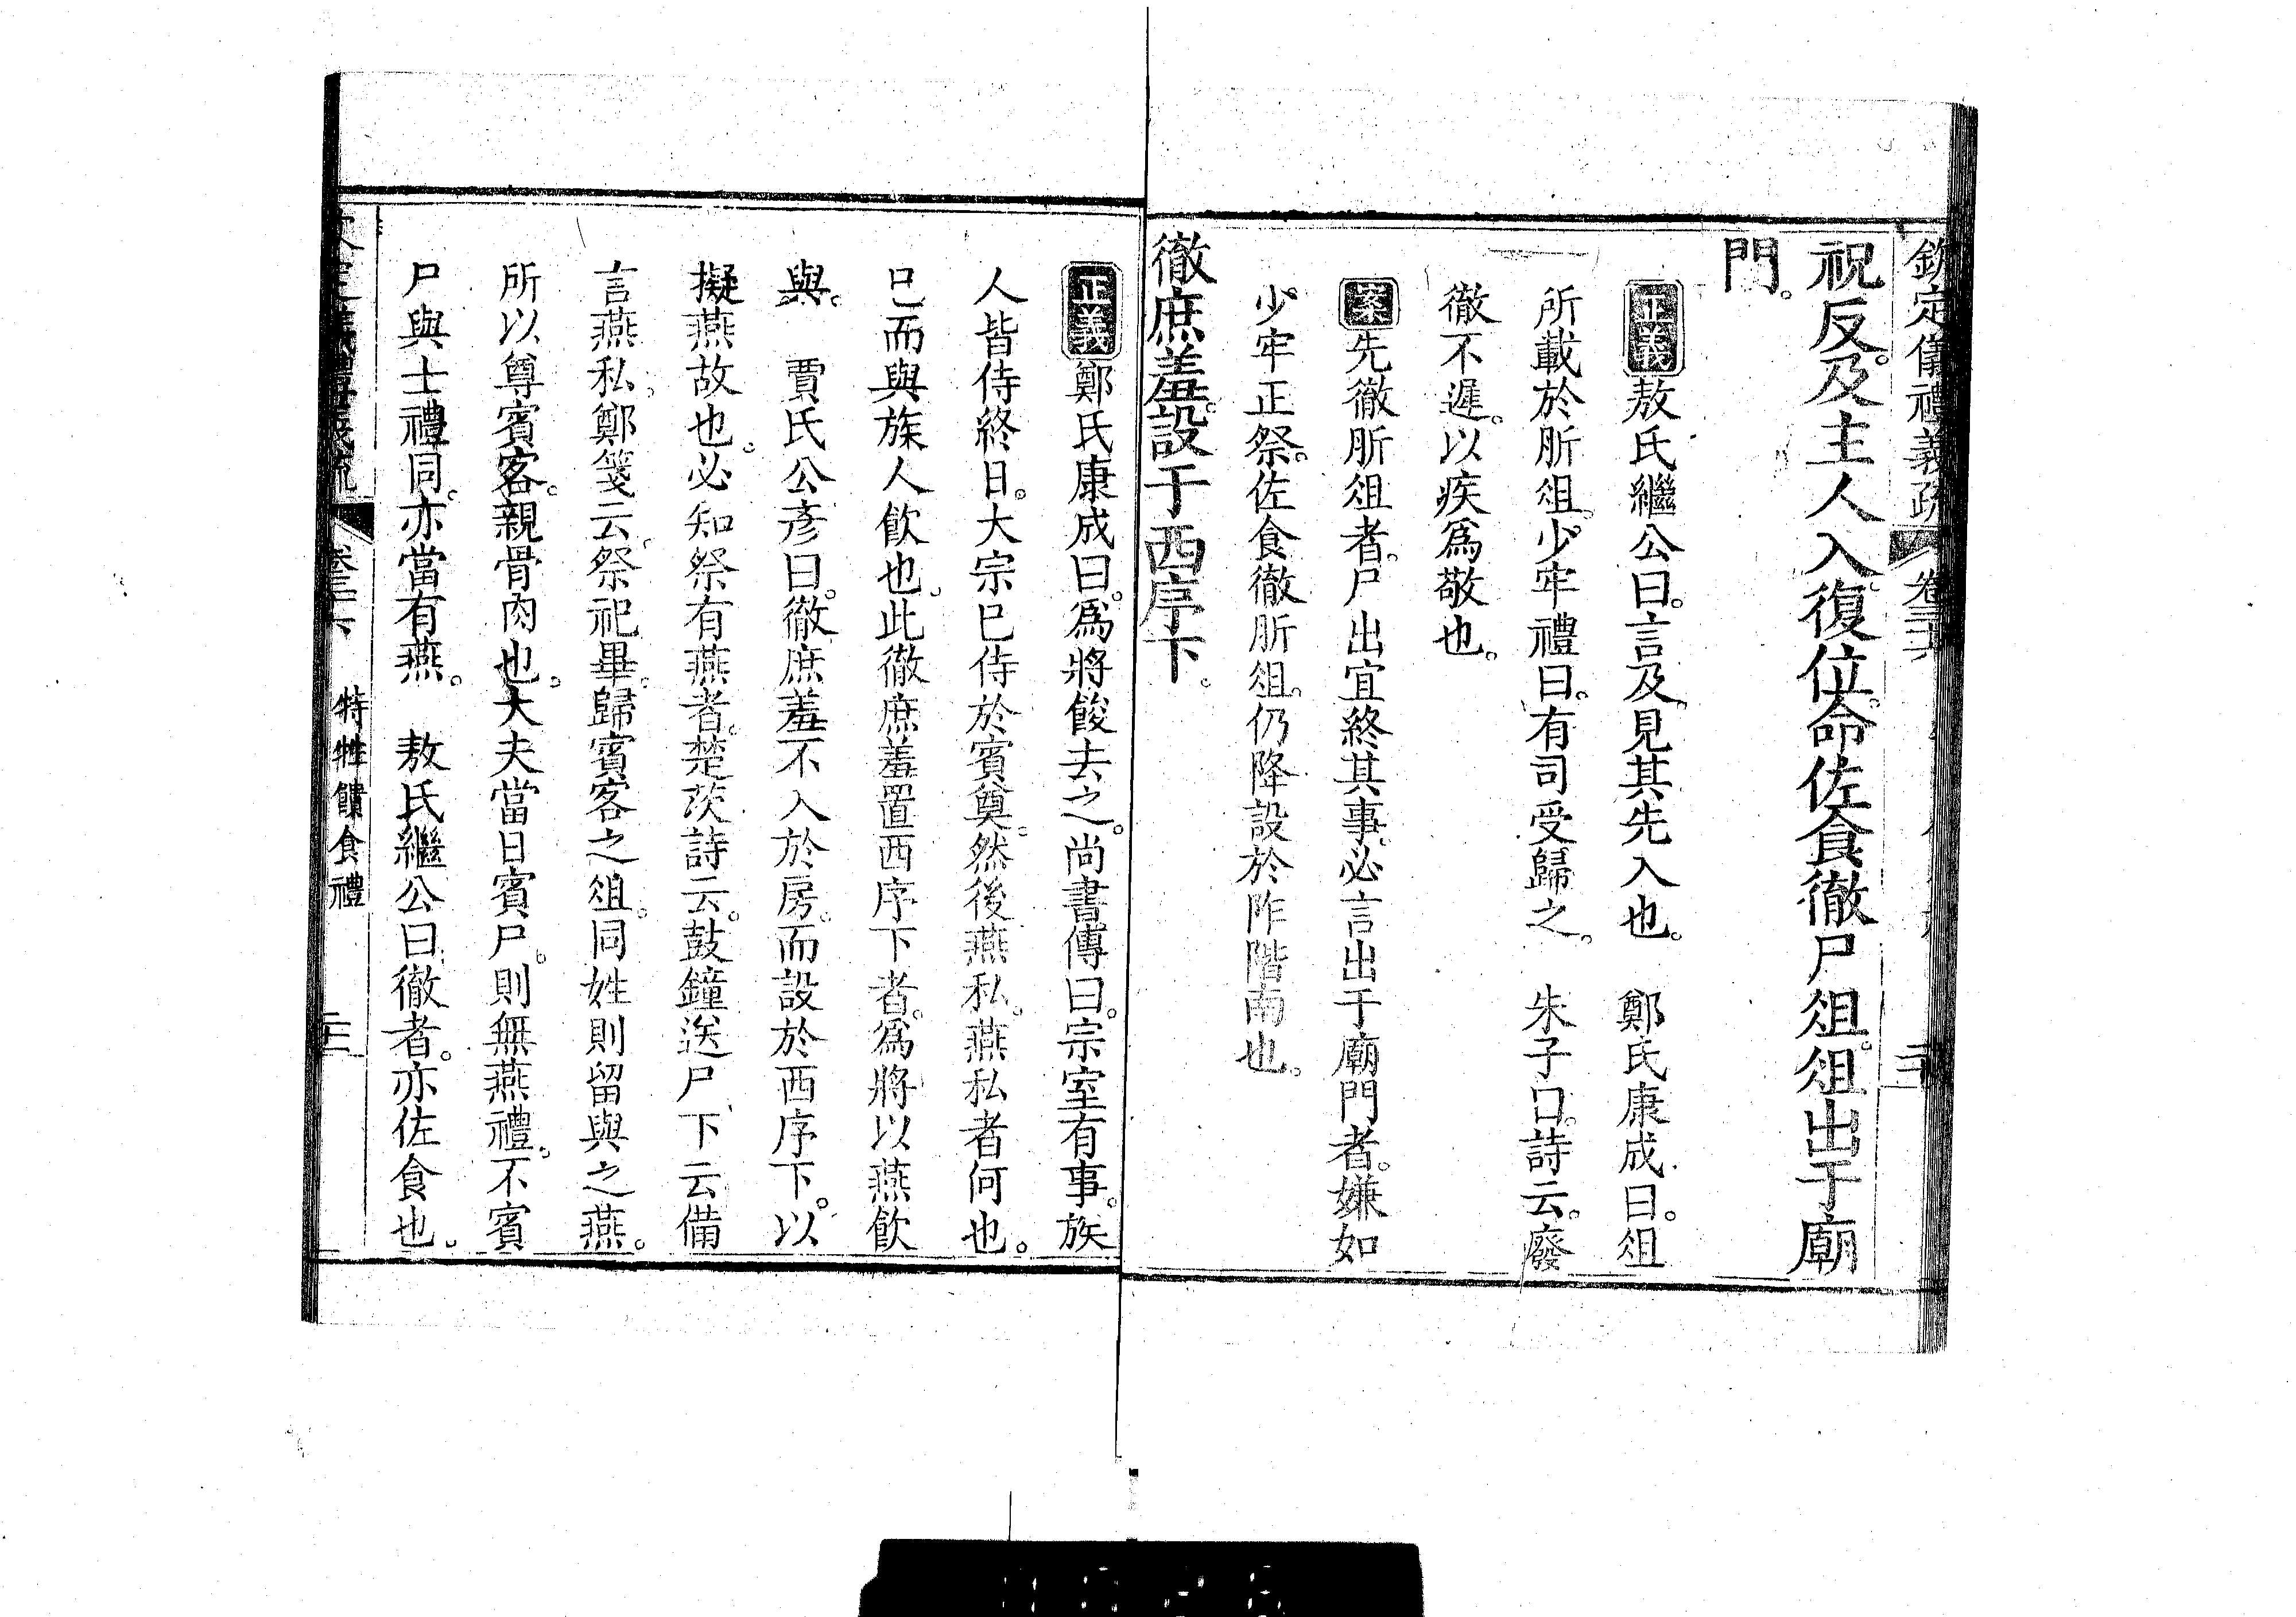 欽定儀禮義疏 卷三十六
祝反。及主人入。復位。命佐食徹尸俎。俎出于廟
門。
正義敖氏繼公曰。言及。見其先入也。 鄭氏康成曰。俎
所載於肵俎。少牢禮曰。有司受歸之。 朱子曰。詩云。廢
徹不遲。以疾爲敬也。
案先徹肵俎者。尸出宜終其事。必言出于廟門者。嫌如
少牢正祭。佐食徹肵俎。仍降設於阼階南也。
徹庶羞。設于西序下。
正義鄭氏康成曰。爲將餕去之。尚書傳曰。宗室有事。族
人皆侍終日。大宗已侍於賓奠。然後燕私。燕私者何也。
已而與族人飲也。此徹庶羞置西序下者。爲將以燕飲
與。 賈氏公彥曰。徹庶羞不入於房。而設於西序下。以
擬燕故也。必知祭有燕者。楚茨詩云。鼓鐘送尸下云備
言燕私。鄭箋云。祭祀畢。歸賓客之俎。同姓則留與之燕。
所以尊賓客。親骨肉也。大夫當日賓尸。則無燕禮。不賓
尸與士禮同。亦當有燕。 敖氏繼公曰徹者。亦佐食也。
卷三十六 特牲饋食禮